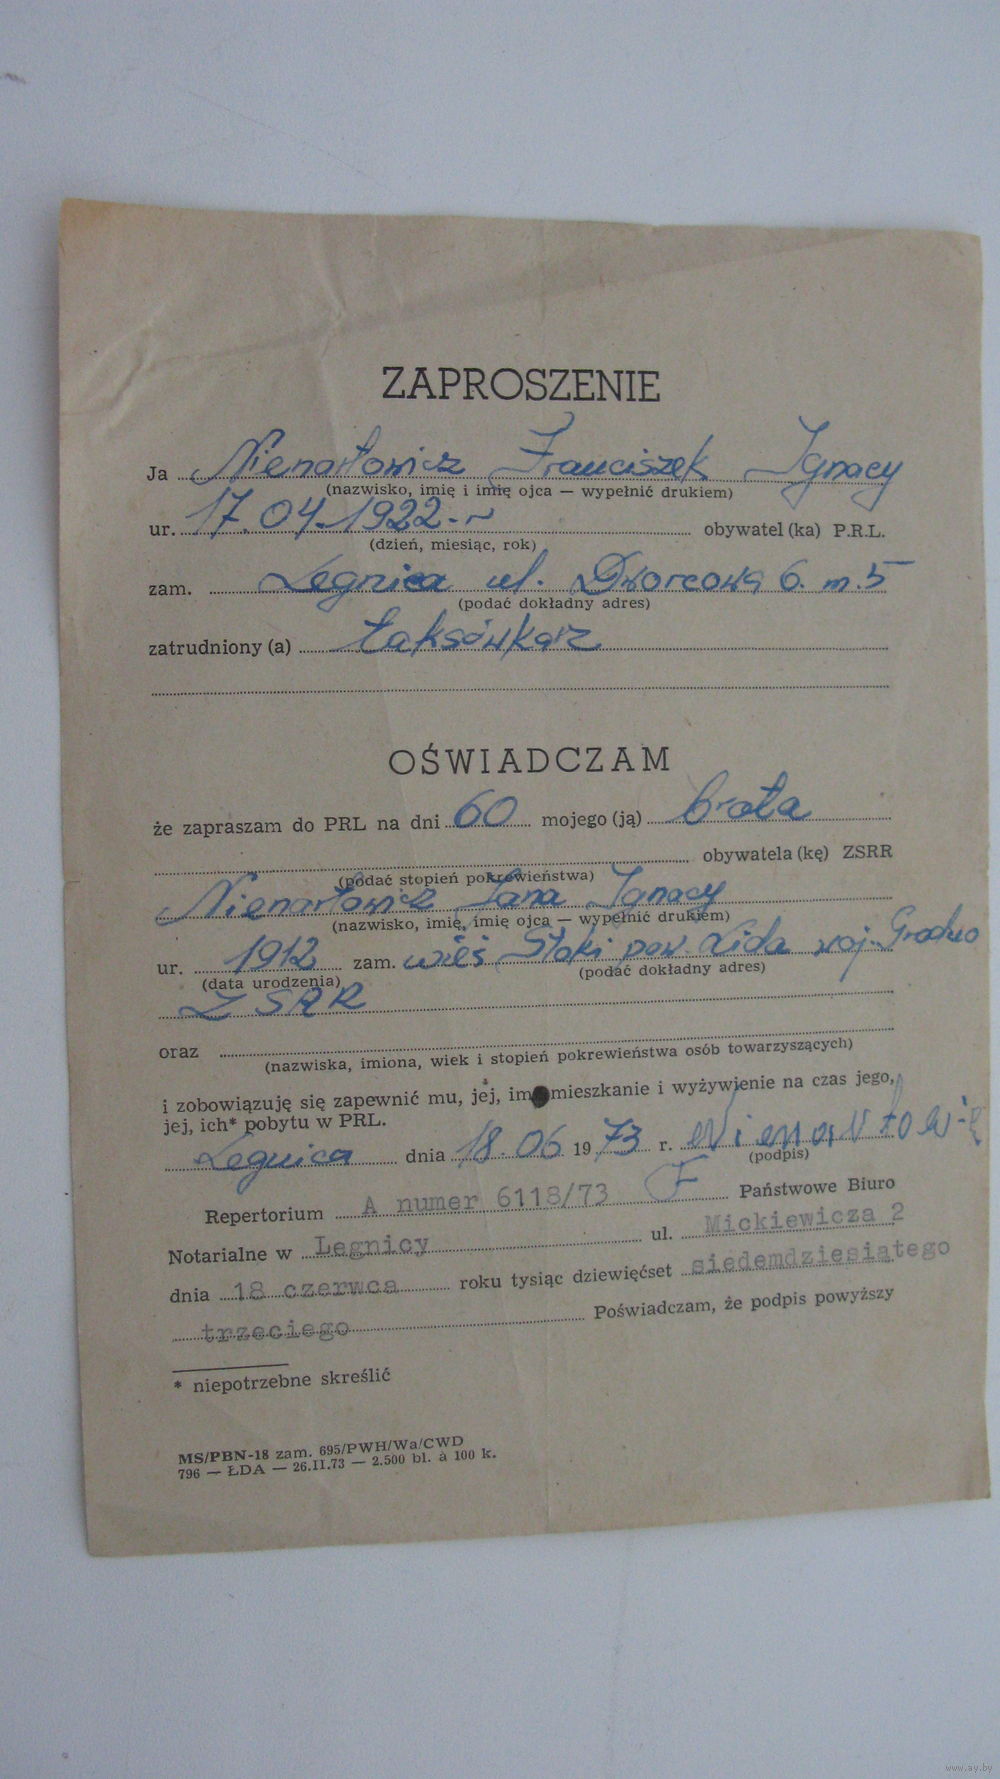 ZAPROSZENIE
Ja Nienartowicz Franciszek Ignacy
(nazwisko, imię i imię ojca — wypełnić drukiem)
ur. 17.04.1922.~ obywatel (ka) P.R.L.
(dzień, miesiąc, rok)
zam. Legnica ul. Dworcowa 6. m. 5
(podać dokładny adres)
zatrudniony (a) taksówkarz
OŚWIADCZAM
że zapraszam do PRL na dni 60 mojego (ją) brata
obywatela (kę) ZSRR
(podać stopień pokrewieństwa)
Nienartowicz Jana Ignacy
(nazwisko, imię, imię ojca — wypełnić drukiem)
ur. 1912 zam. wieś Stoki pow. Lida woj. Grodno
(data urodzenia) (podać dokładny adres)
ZSRR
oraz
(nazwiska, imiona, wiek i stopień pokrewieństwa osób towarzyszących)
i zobowiązuję się zapewnić mu, jej, im mieszkanie i wyżywienie na czas jego,
jej, ich* pobytu w PRL.
Legnica dnia 18.06 1973 r. Nienartowicz
(podpis)
F
Repertorium A numer 6118/73 Państwowe Biuro
Notarialne w Legnicy ul. Mickiewicza 2
dnia 18 czerwca roku tysiąc dziewięćset siedemdziesiątego
trzeciego Poświadczam, że podpis powyższy
* niepotrzebne skreślić
MS/PBN-18 zam. 695/PWH/Wa/CWD
796 — ŁDA — 26.II.73 — 2.500 bl. à 100 k.
www.ay.by